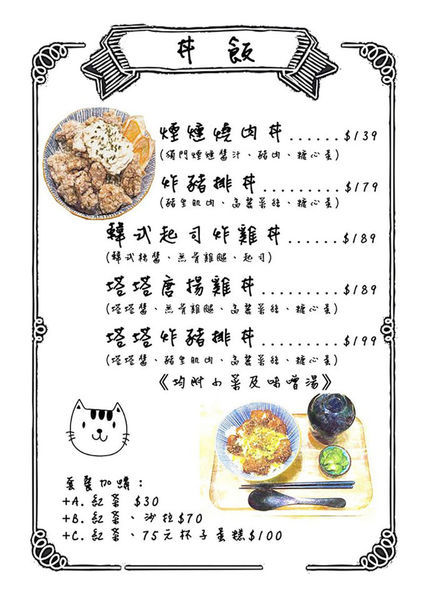 丼飯
煙燻燒肉丼......$139
(獨門煙燻醬汁、豬肉、糖心蛋)
炸豬排丼.........$179
(豬里肌肉、高麗菜絲、糖心蛋)
韓式起司炸雞丼.........$189
(韓式辣醬、無骨雞腿、起司)
塔塔唐揚雞丼.........$189
(塔塔醬、無骨雞腿、高麗菜絲、糖心蛋)
塔塔炸豬排丼.........$199
(塔塔醬、豬里肌肉、高麗菜絲、糖心蛋)
《均附小菜及味噌湯》
套餐加購：
+A.紅茶 $30
+B.紅茶、沙拉$70
+C.紅茶、75元杯子蛋糕$100